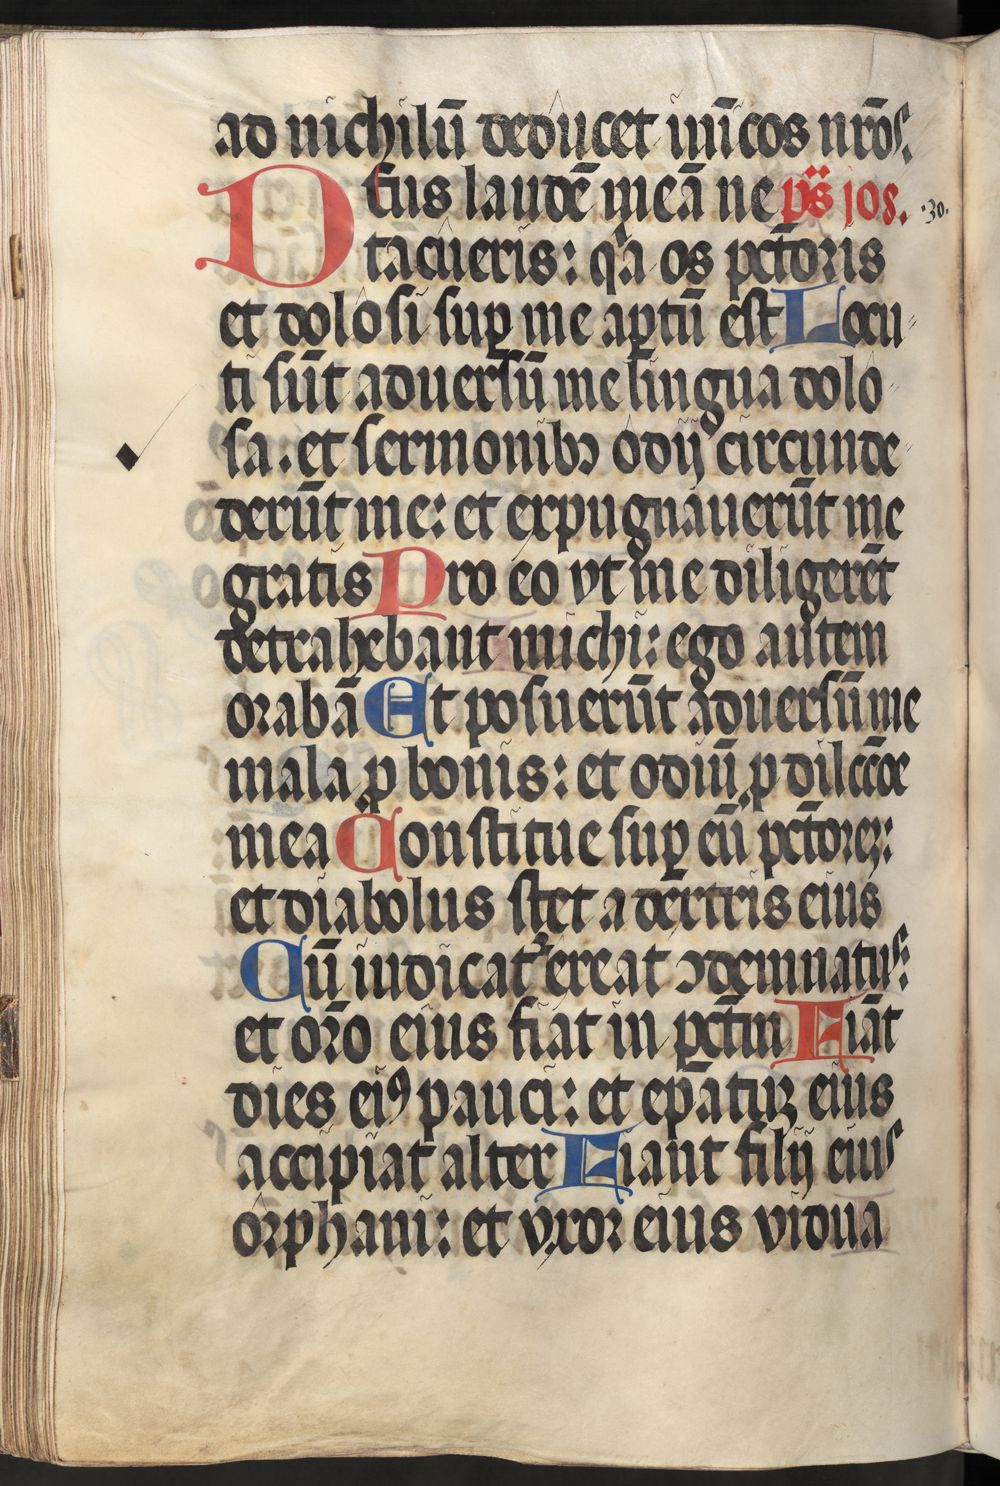 ad nichilū deducet inīcos nrōs.
Deus laudē meā ne ps̄ 108. .30.
tacueris: qa os pctōris
et dolosi sup me aptū est Locu
ti sūt aduersū me lingua dolo
sa. et sermonibꝫ odij circunde
derūt me: et expugnauerūt me
gratis Pro eo vt me diligerēt
detrahebant michi: ego autem
orabā Et posuerūt aduersū me
mala ꝓ bonis: et odiū ꝓ dilcc̄oe
mea Constitue sup eū pctōrez:
et diabolus stet a dextris eius
Cū iudicat᷑ exeat ꝯdemnatus:
et orō eius fiat in pctm̄ Fiāt
dies eiꝰ pauci: et ep̄atuz eius
accipiat alter Fiant filij eius
orphani: et vxor eius vidua